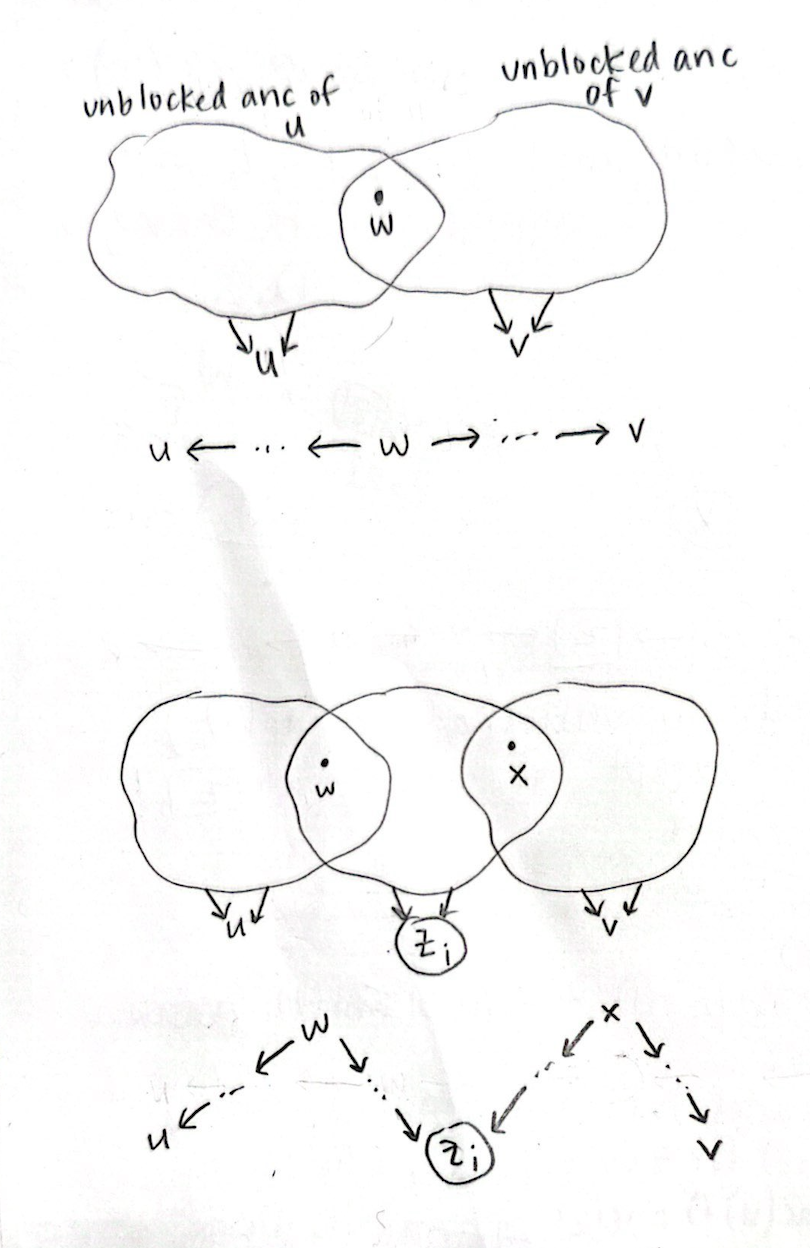 unblocked anc of
u
unblocked anc
of v
w
u
v
u ← ... ← w → ... → v
w
x
u
z i
v
w
x
u
z i
v